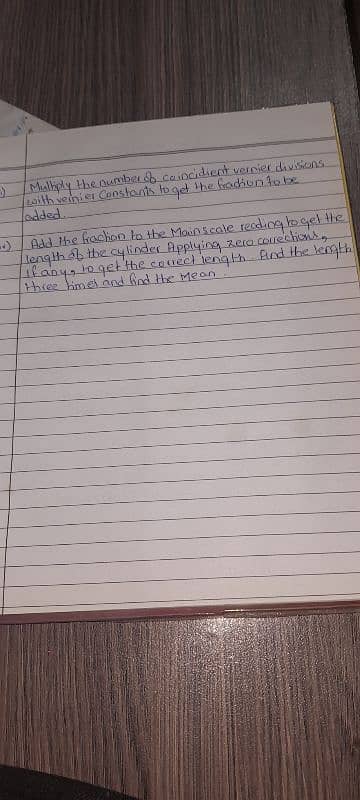 Multiply the number of coincidient vernier divisions
with vernier Constants to get the fraction to be
added.
Add the fraction to the Mainscale reading to get the
length of the cylinder Applying zero corrections,
if any, to get the correct length. find the length
three times and find the Mean.